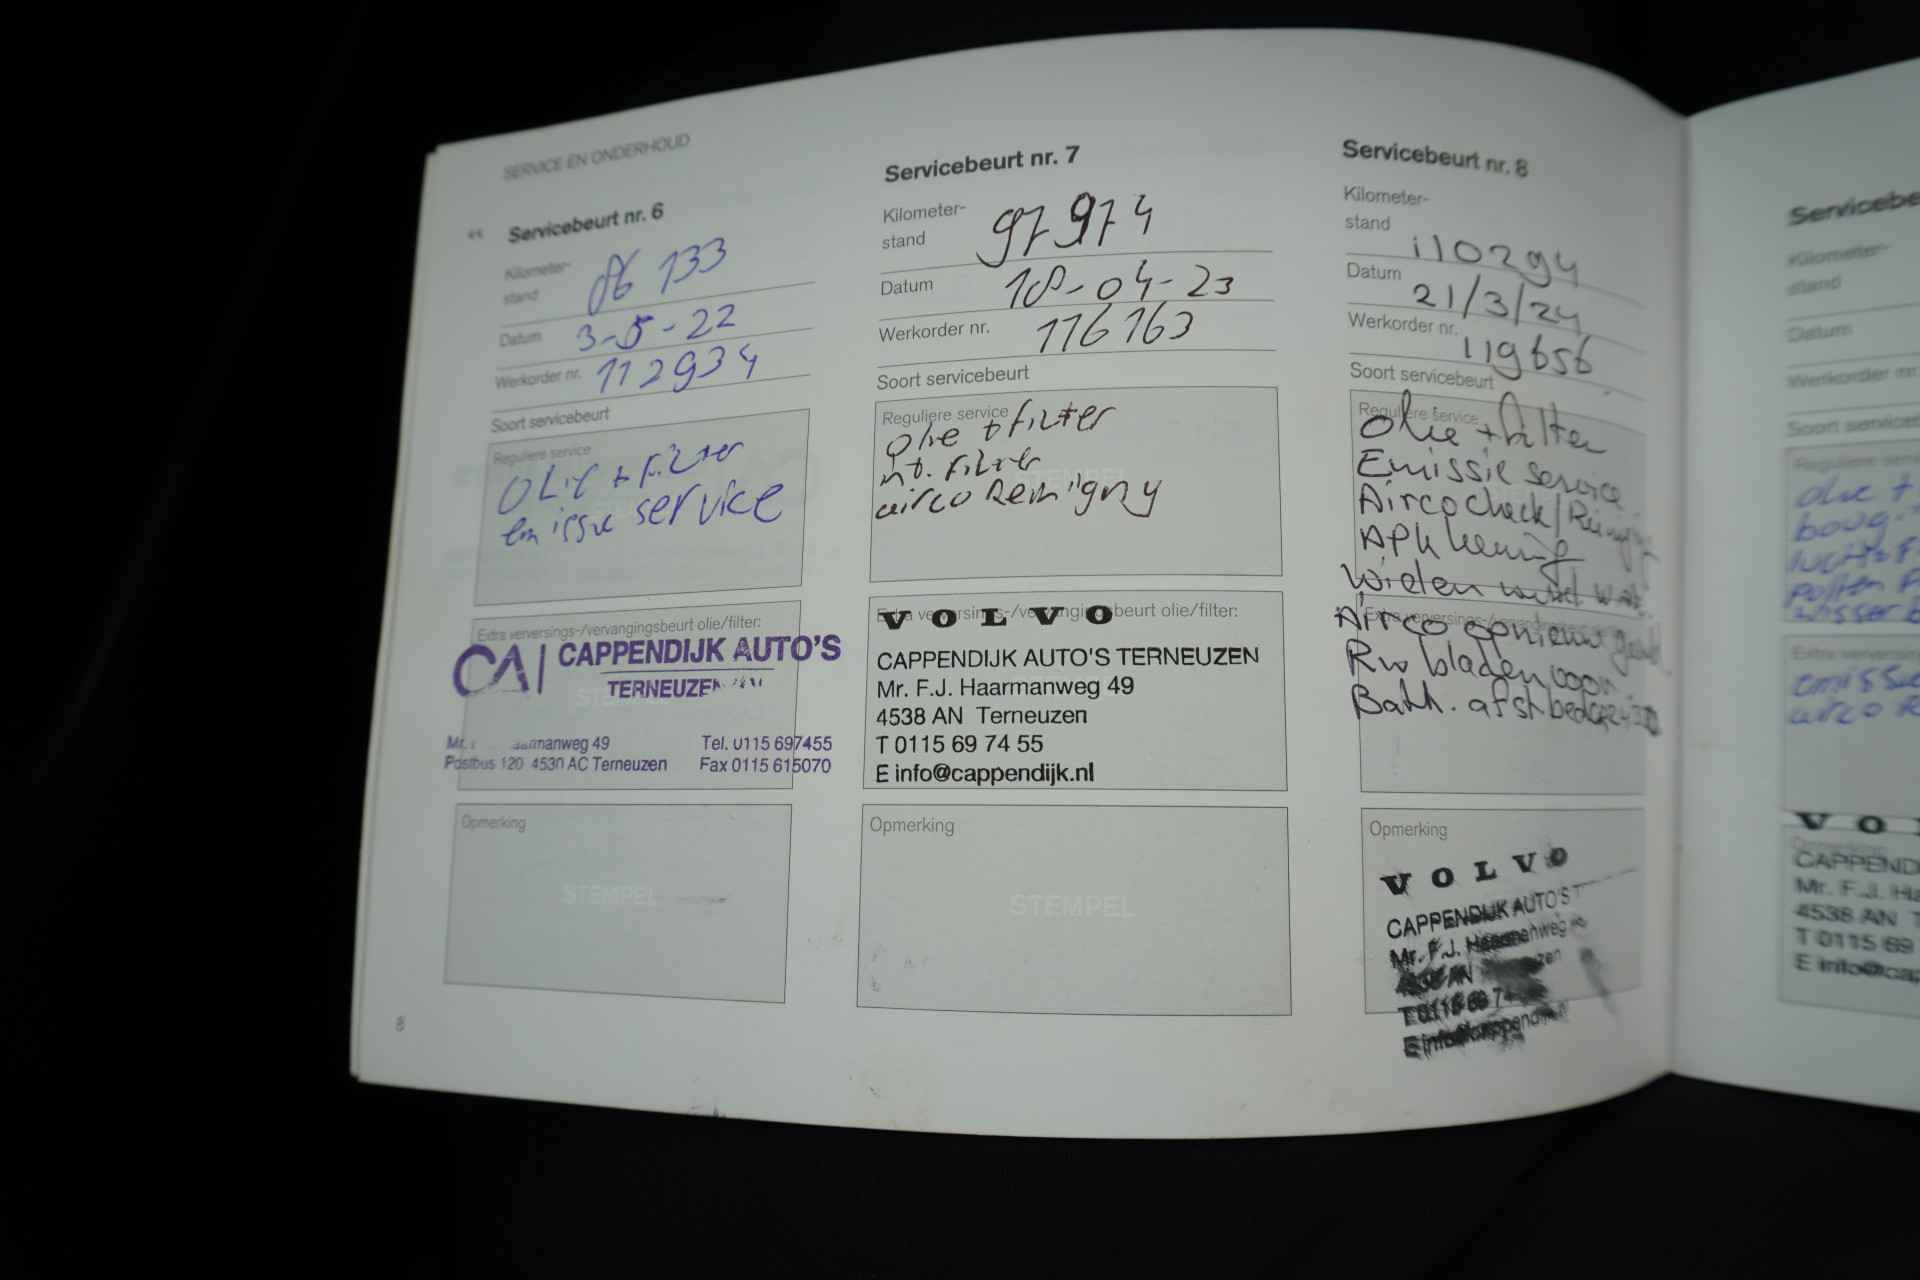 SERVICE EN ONDERHOUD
Servicebeurt nr. 6
Kilometer-
stand 86 133
Datum 3-5-22
Werkorder nr. 112934
Soort servicebeurt
Reguliere service
Olie + Filter
emissie service
Extra verversings-/vervangingsbeurt olie/filter:
CA CAPPENDIJK AUTO'S
TERNEUZEN
STEMPEL
Mr. Haarmanweg 49 Tel. 0115 697455
Postbus 120 4530 AC Terneuzen Fax 0115 615070
Opmerking
STEMPEL
8
Servicebeurt nr. 7
Kilometer-
stand 97974
Datum 18-04-23
Werkorder nr. 116163
Soort servicebeurt
Reguliere service
olie + filter
int. filter
airco Reinigny
STEMPEL
Extra verversings-/vervangingsbeurt olie/filter:
VOLVO
CAPPENDIJK AUTO'S TERNEUZEN
Mr. F.J. Haarmanweg 49
4538 AN Terneuzen
T 0115 69 74 55
E info@cappendijk.nl
Opmerking
STEMPEL
Servicebeurt nr. 8
Kilometer-
stand 110294
Datum 21/3/24
Werkorder nr. 119656
Soort servicebeurt
Reguliere service
Olie + filter
Emissie service
Airco check/
APK keuring
Wielen
Airco opnieuw
Rw bladen voor
Batt. afstbed
Opmerking
VOLVO
CAPPENDIJK AUTO'S T
Mr. F.J. Haarmanweg
4538 AN
T 0115 69 74
E info@cappendijk.n
Servicebe
Kilometer-
stand
Datum
Werkorder nr.
Soort servicebe
Reguliere serv
olie +
boug
Extra verversin
emissie
airco R
VO
CAPPEND
Mr. F.J. Ha
4538 AN T
T 0115 69
E info@cap